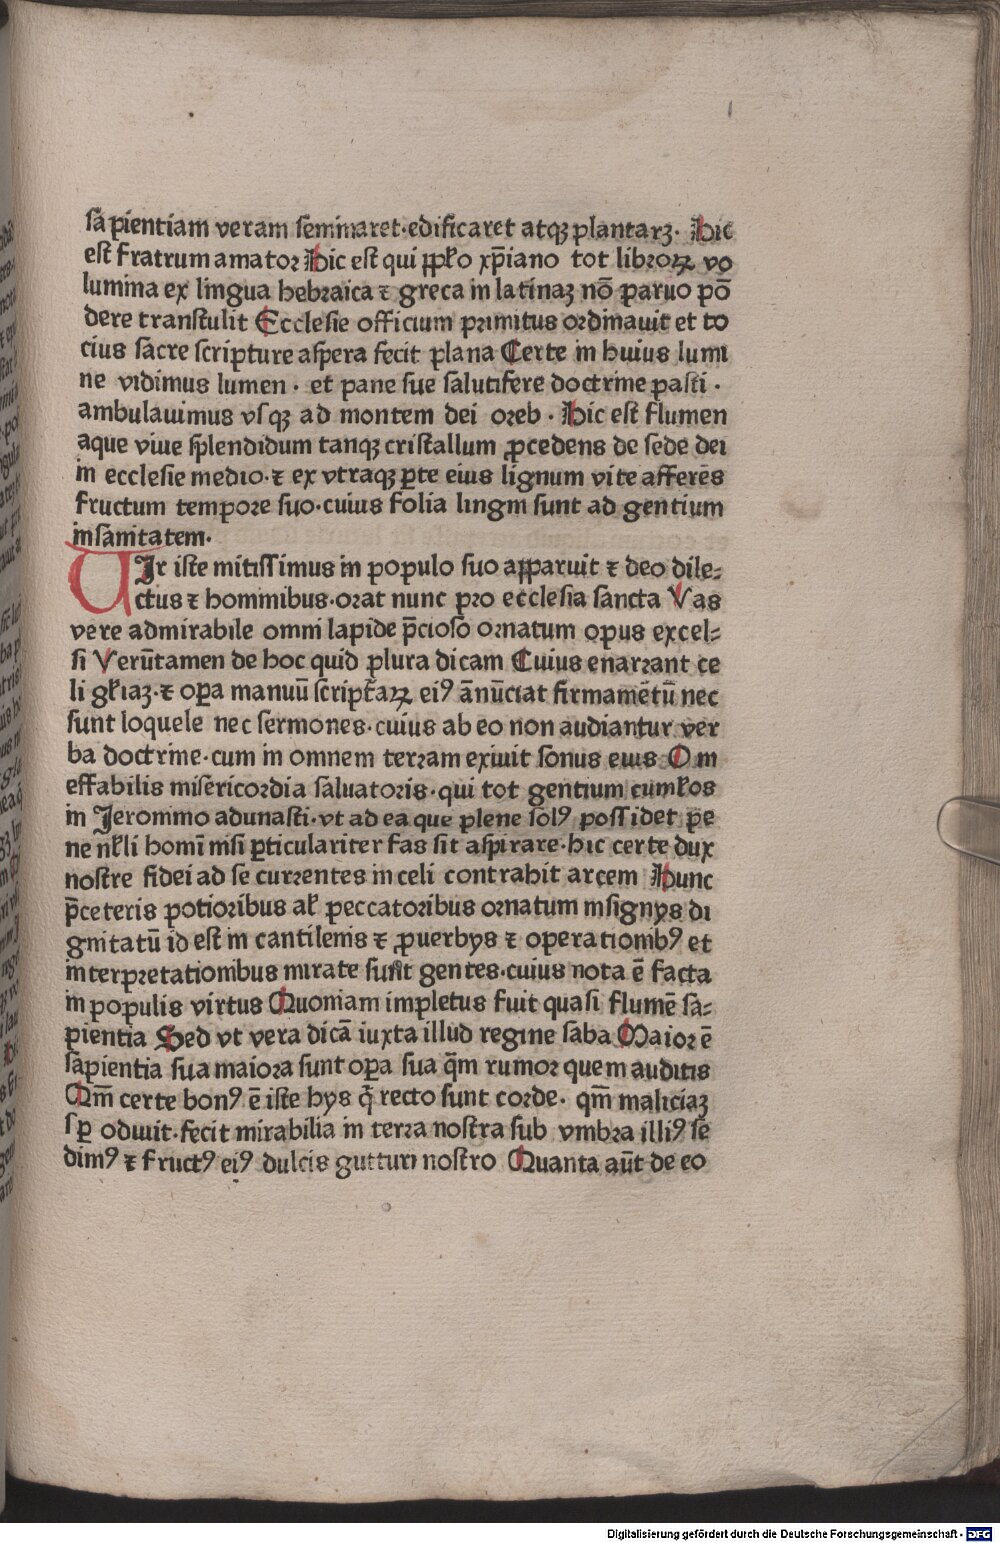 sā pientiam veram seminaret·edificaret atqꝫ plantarꝫ· Hic
est fratrum amator Hic est qui ꝓpl̄o xp̄iano tot libroꝝ vo
lumina ex lingua hebraica ⁊ greca in latinaꝫ nō paruo pō
dere transtulit Ecclesie officium primitus ordinauit et to
cius sacre scripture aspera fecit plana Certe in huius lumi
ne vidimus lumen· et pane sue salutifere doctrine pasti·
ambulauimus vsqꝫ ad montem dei oreb· Hic est flumen
aque viue splendidum tanqꝫ cristallum ꝓcedens de sede dei
in ecclesie medio·⁊ ex vtraqꝫ ꝑte eius lignum vite afferēs
fructum tempore suo·cuius folia lingni sunt ad gentium
in sanitatem·
VIr iste mitissimus in populo suo apparuit ⁊ deo dile-
ctus ⁊ hominibus·orat nunc pro ecclesia sancta Vas
vere admirabile omni lapide p̄cioso ornatum opus excel-
si Verūtamen de hoc quid plura dicam Cuius enarrant ce
li gl̄iaꝫ·⁊ oꝑa manuū script̄aꝝ eiꝰ ānūciat firmamētū nec
sunt loquele nec sermones·cuius ab eo non audiantur ver
ba doctrine·cum in omnem terram exiuit sonus eius O in
effabilis misericordia saluatoris·qui tot gentium cuml̄os
in Jeronimo adunasti·vt ad ea que plene solꝰ possidet pe
ne nl̄li homī nisi ꝑticulariter fas sit aspirare·hic certe dux
nostre fidei ad se currentes in celi contrahit arcem Hunc
p̄ceteris potioribus al̄ peccatoribus ornatum insignys di
gnitatū id est in cantilenis ⁊ ꝓuerbys ⁊ operationibꝰ et
interpretationibus mirate sunt gentes·cuius nota ē facta
in populis virtus Quoniam impletus fuit quasi flumē sa-
pientia Sed vt vera dicā iuxta illud regine saba Maior ē
sapientia sua maiora sunt oꝑa sua q̄m rumor quem auditis
Qm̄ certe bonꝰ ē iste hys q̄ recto sunt corde· qm̄ maliciaꝫ
sꝑ odiuit·fecit mirabilia in terra nostra sub vmbra illiꝰ se
dimꝰ ⁊ fructꝰ eiꝰ dulcis gutturi nostro Quanta aūt de eo
Digitalisierung gefördert durch die Deutsche Forschungsgemeinschaft - DFG